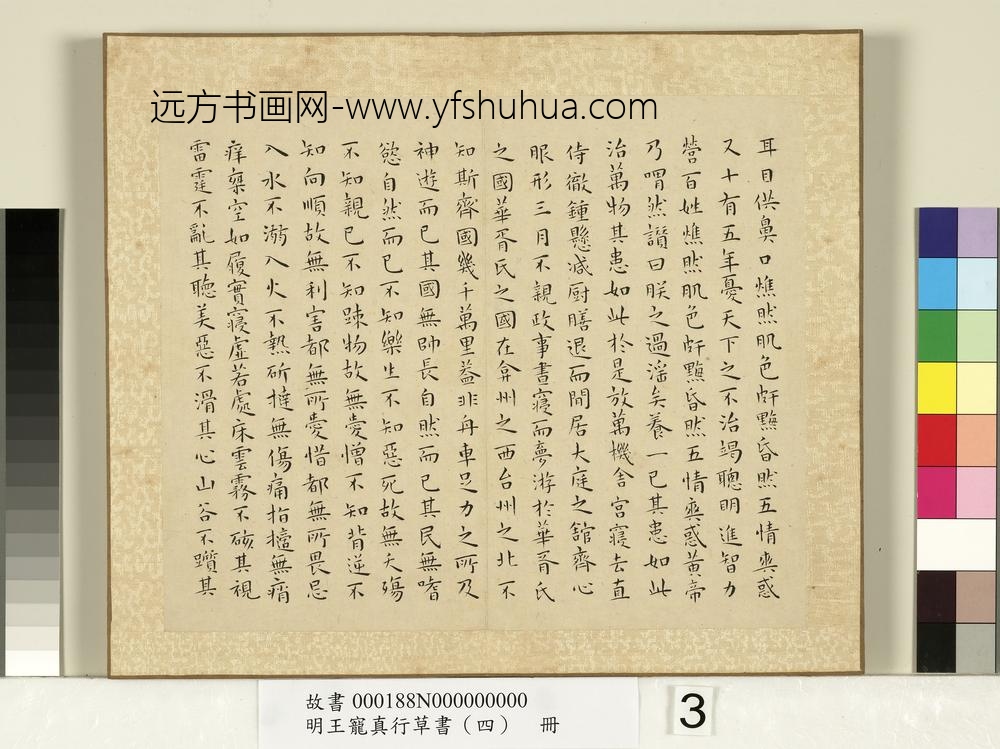 远方书画网-www.yfshuhua.com
耳目供鼻口燋然肌色皯黣昏然五情爽惑
又十有五年憂天下之不治竭聰明進智力
營百姓燋然肌色皯黣昏然五情爽惑黃帝
乃喟然讃曰朕之過淫矣養一己其患如此
治萬物其患如此於是放萬機舍宮寢去直
侍徹鍾懸減厨膳退而間居大庭之舘齊心
服形三月不親政事晝寢而夢游於華胥氏
之國華胥氏之國在弇州之西台州之北不
知斯齊國幾千萬里蓋非舟車足力之所及
神遊而已其國無帥長自然而已其民無嗜
慾自然而已不知樂生不知惡死故無夭殤
不知親己不知踈物故無愛憎不知背逆不
知向順故無利害都無所愛惜都無所畏忌
入水不溺入火不熱斫撻無傷痛指擿無痟
痒椉空如履實寢虛若處床雲霧不硋其視
雷霆不亂其聰美惡不滑其心山谷不躓其
故書 000188N000000000
明王寵真行草書（四） 冊
3